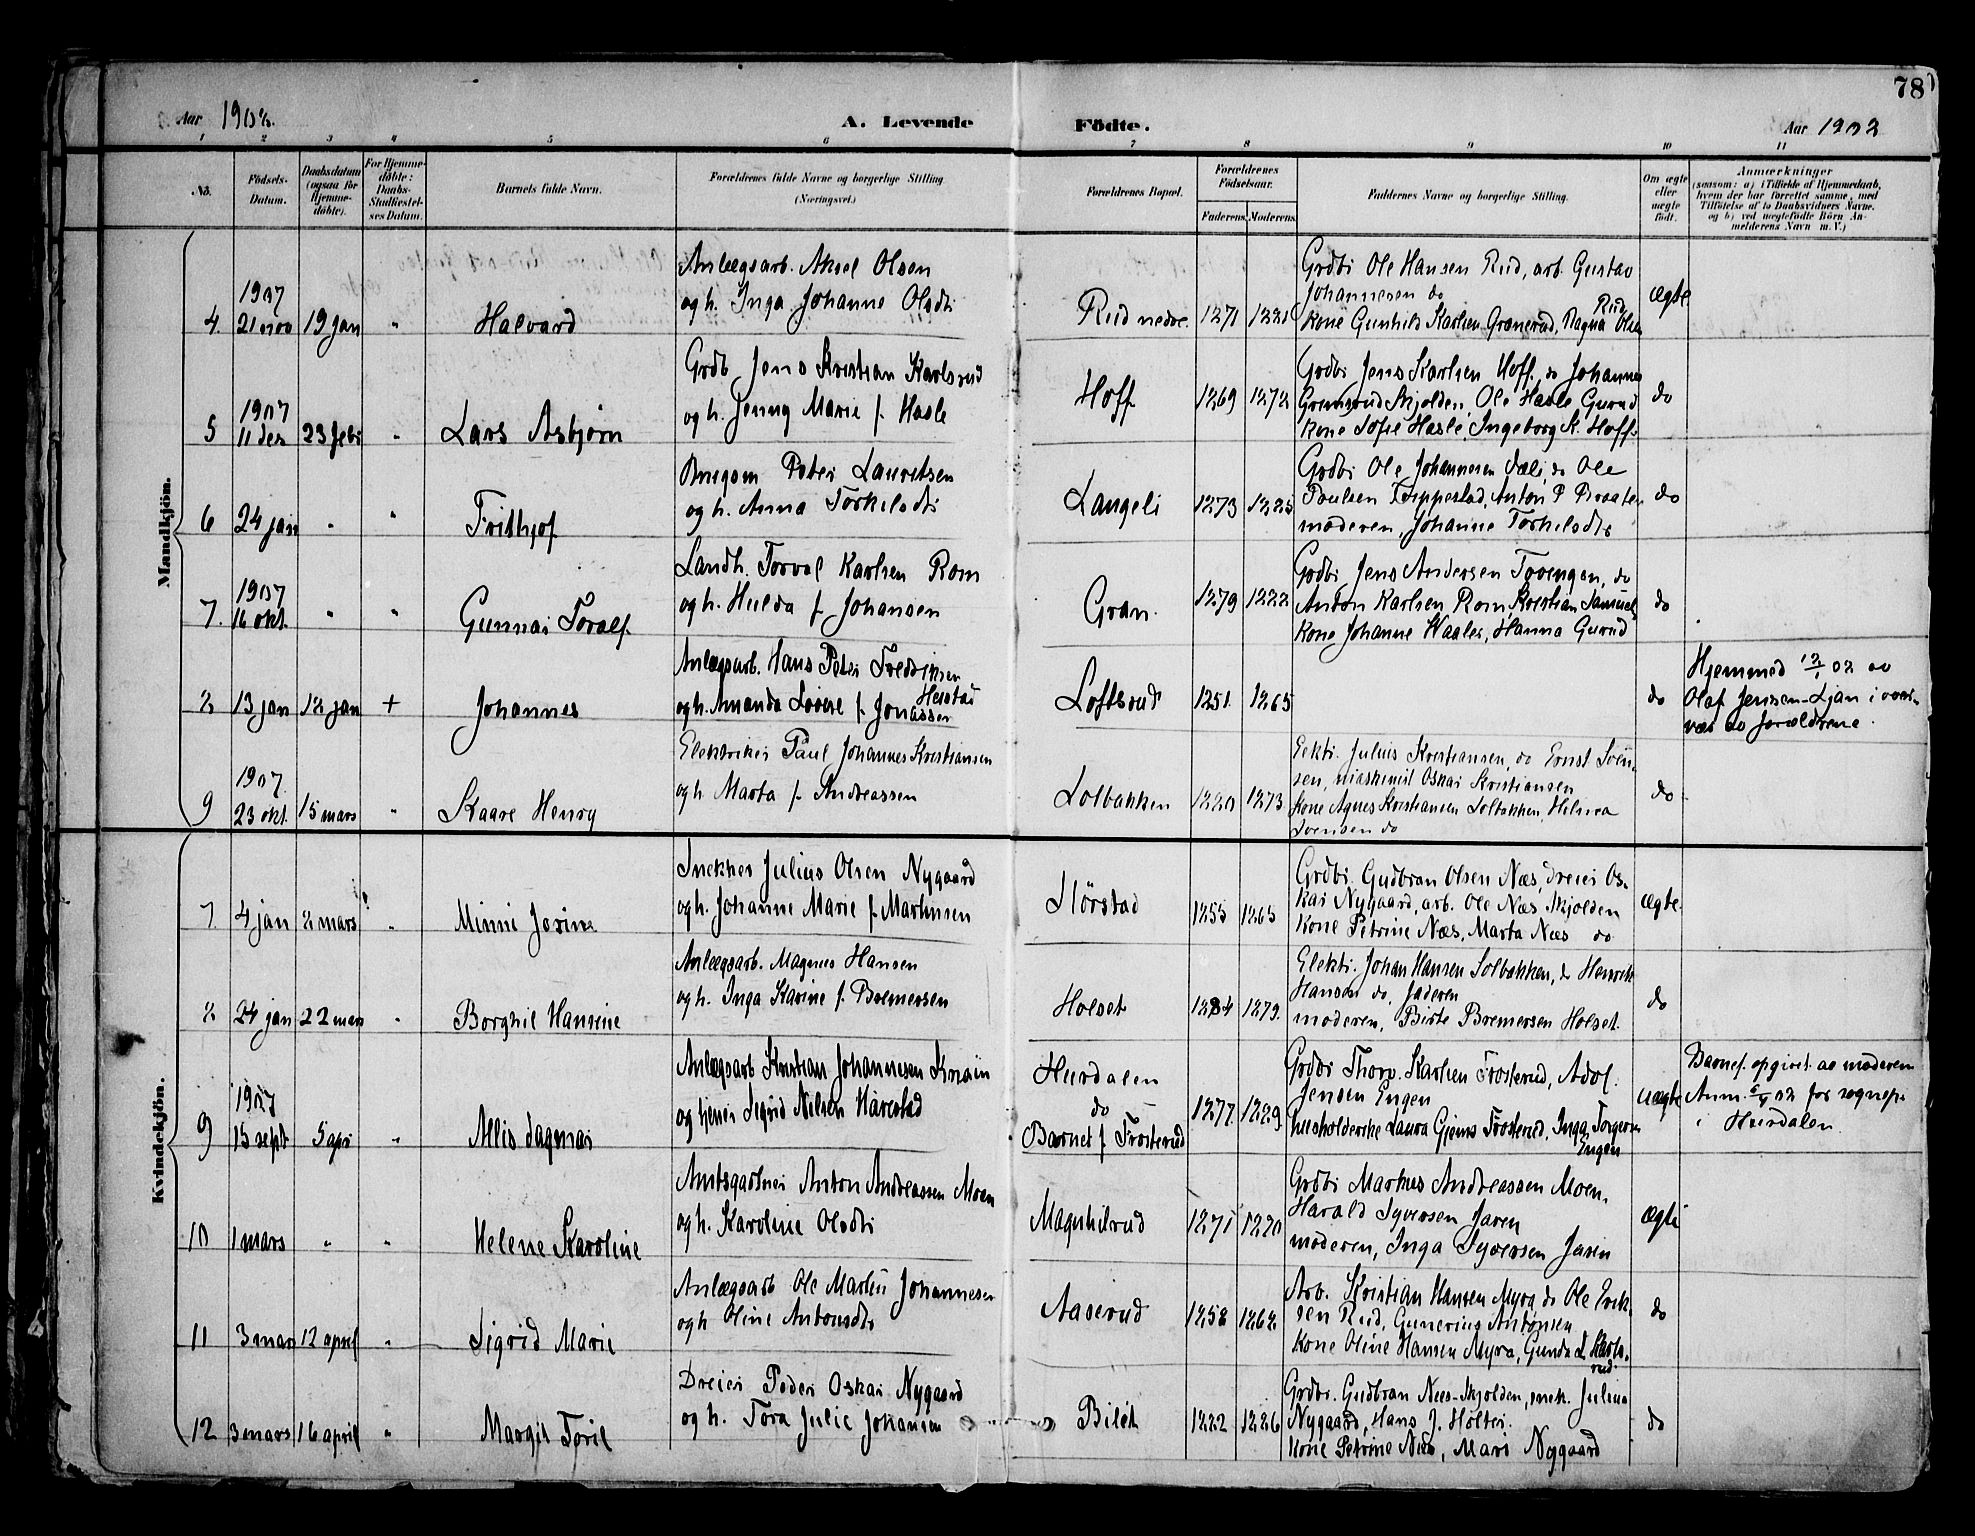 78
Aar 1908. A. Levende Födte. Aar 1908
1 2 3 4 5 6 7 8 9 10 11
No.
Födsels-
Datum.
Daabsdatum
(ogsaa for
Hjemme-
döbte).
For Hjemme-
döbte:
Daabs-
Stadfæstel-
ses Datum.
Barnets fulde Navn.
Forældrenes fulde Navne og borgerlige Stilling
(Næringsvei.)
Forældrenes Bopæl.
Forældrenes
Födselsaar.
Faderens. Moderens.
Faddernes Navne og borgerlige Stilling.
Om ægte
eller
uægte
födt.
Anmærkninger
(saasom: a) i Tilfælde af Hjemmedaab,
hvem der har forrettet samme, med
Tilföielse af to Daabsvidners Navne.
og b) ved uægtefödte Börn An-
melderens Navn m. V.)
Mandkjön.
4 1907 21 nov 19 jan " Halvard
Anlægsarb. Aksel Olsen
og h. Inga Johanne Olsdtr
Rud nedre 1871 1881
Grdbr Ole Hansen Rud, arb. Gustav
Johannesen do
Kone Gunhild Karlsen Granerud, Ragna Olsen
Rud
ægte
5 1907 11 des 23 febr " Lars Asbjørn
Grdb. Jens Kristian Karlsrud
og h. Jenny Marie f. Hasle
Hoff 1869 1872
Grdbr Jens Karlsen Hoff, do Johannes
Grimsrud Skjolden, Ole Hasle Gurud
Kone Sofie Hasle, Ingeborg K. Hoff.
do
6 24 jan " " Frithjof
Peter Lauritsen
og h. Anna Torkilsdtr
Langeli 1873 1885
Grdbr Ole Johannesen do Ole
Paulsen Anton P Braaten
moderen, Johanne Torkilsdtr
do
7. 1907 16 okt. " " Gunnar Toralf
Landh. Torval Karlsen Rom
og h. Hulda f. Johansen
Gran. 1879 1882
Grdbr Jens Andersen Tovengen, do
Anton Karlsen Rom, Kristian Samuels
Kone Johanne Waaler, Hanna Gurud
do
8 13 jan 18 jan + Johannes
Anlægsarb. Hans Peter Fredriksen
Herstad
og h. Amanda Lovise f. Jonassen
Loftsrud 1851 1865
do
Hjemmed 18/1 08 av
Olaf Jenssen-Ljan i over-
vær av forældrene.
9 1907. 23 okt. 15 mars " Kaare Henry
Elektriker Paul Johannes Kristiansen
og h. Marta f. Andreassen
Solbakken 1880 1873
Elektr. Julius Kristiansen, do Ernst Sven-
sen, maskinist Oskar Kristiansen
Kone Agnes Kristiansen Solbakken, Helmea
Svensen do
do
Kvindekjön.
7. 4 jan 8 mars " Minni Jorine
Snekker Julius Olsen Nygaard
og h. Johanne Marie f. Martinsen
Hörstad 1855 1865
Grdbr. Gudbran Olsen Næs, dreier Os-
kar Nygaard, arb. Ole Næs, Skjolden
Kone Petrine Næs, Marta Næs do
ægte
8 24 jan 22 mars " Borghil Hansine
Anlægsarb. Magnus Hansen
og h. Inga Karine f. Bremersen
Holset 1884 1879.
Elektr. Johan Hansen Solbakken, do Henrik
Hansen do, faderen
moderen, Birte Bremersen Holset.
do
9 1907 15 sept 5 apr " Allis Dagmar
Anlægsarb Kristian Johannesen Knain
og tjener Sigrid Nilsen Harestad
Hurdalen
do
Barnet f. Trosterud
1877. 1889.
Grdbr Thorv. Karlsen Trosterud, Adol.
Jensen Engen
husholderske Laura Gjems Trosterud, Inga Torgersen
Engen
uægte
Barnef. opgivet av moderen
Anm. 6/4 08 for sognepr
i Hurdalen.
10 1 mars " " Helene Karoline
Amtsgartner Anton Andreassen Moen
og h. Karoline Olsdtr
Magnhilrud 1871 1880
Grdbr Markus Andreassen Moen,
Harald Syversen Jaren
moderen, Inga Syversen Jaren
ægte
11 3 mars 12 april " Sigrid Marie
Anlægsarb Ole Martin Johannesen
og h Oline Antonsdtr
Aaserud 1858 1868
Arb. Kristian Hansen Myra, do Ole Erik-
sen Rud, Gunerius Antonsen
Kone Oline Hansen Myra, Gunda L Karls-
rud
do
12 3 mars 16 april " Margit Toril
Dreier Peder Oskar Nygaard
og h. Tora Julie Johansen
Bilet 1882 1886
Grdbr. Gudbran Næs-Skjolden, snek. Julius
Nygaard, Hans J. Holter.
Kone Petrine Næs, Mari Nygaard
do